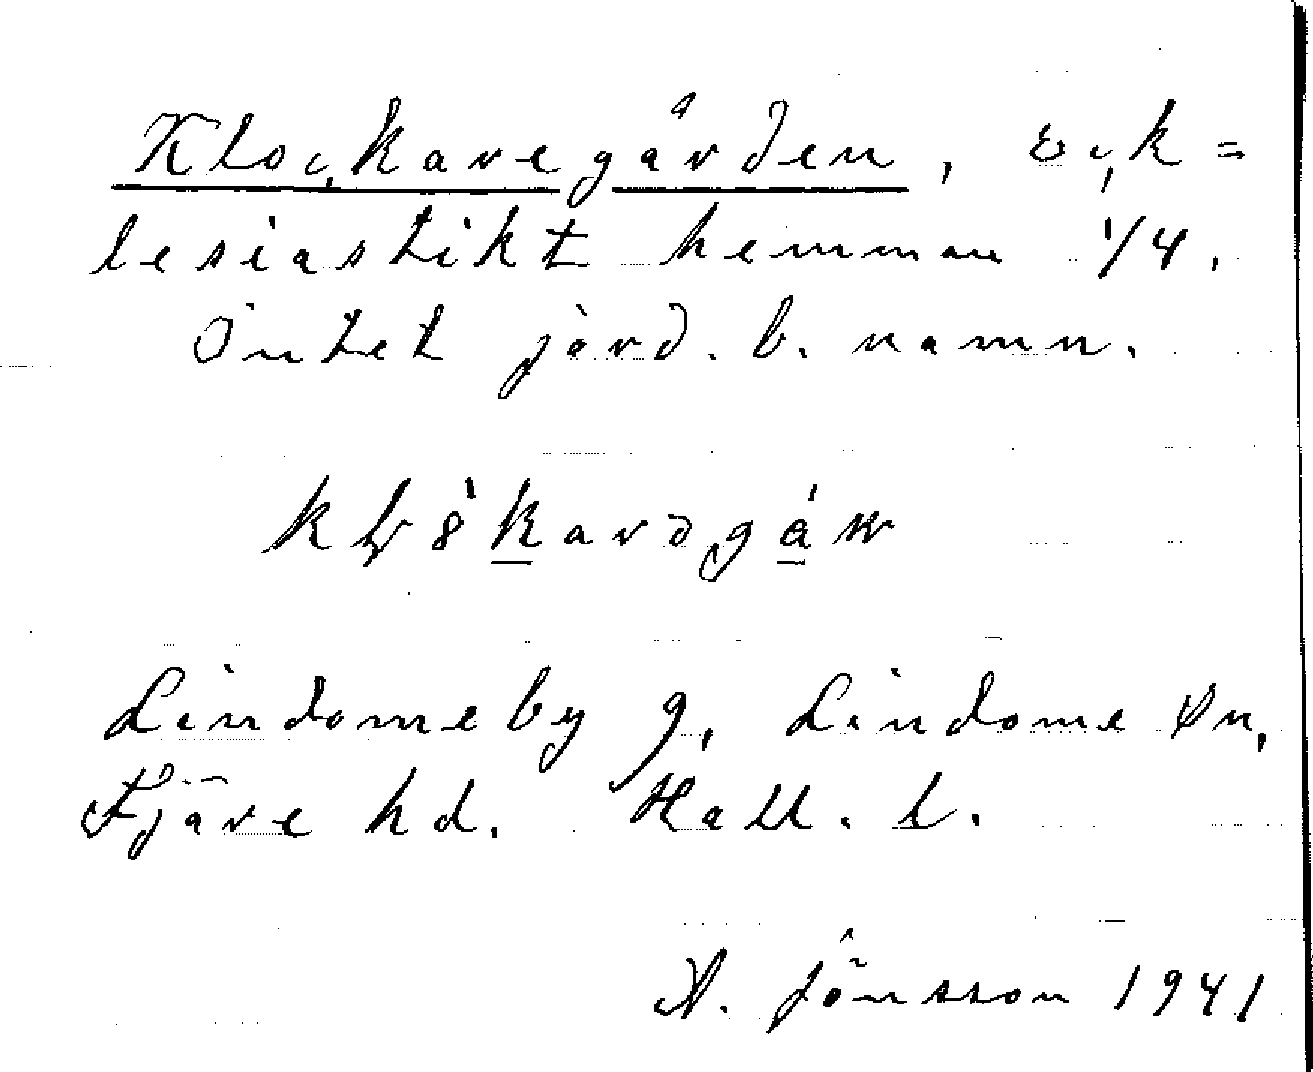 Klockaregården, eck=
lesiastikt hemman 1/4.
Intet jord. b. namn.
Lindomeby g, Lindome sn,
Fjäre hd. Hall. l.
A. Jönsson 1941